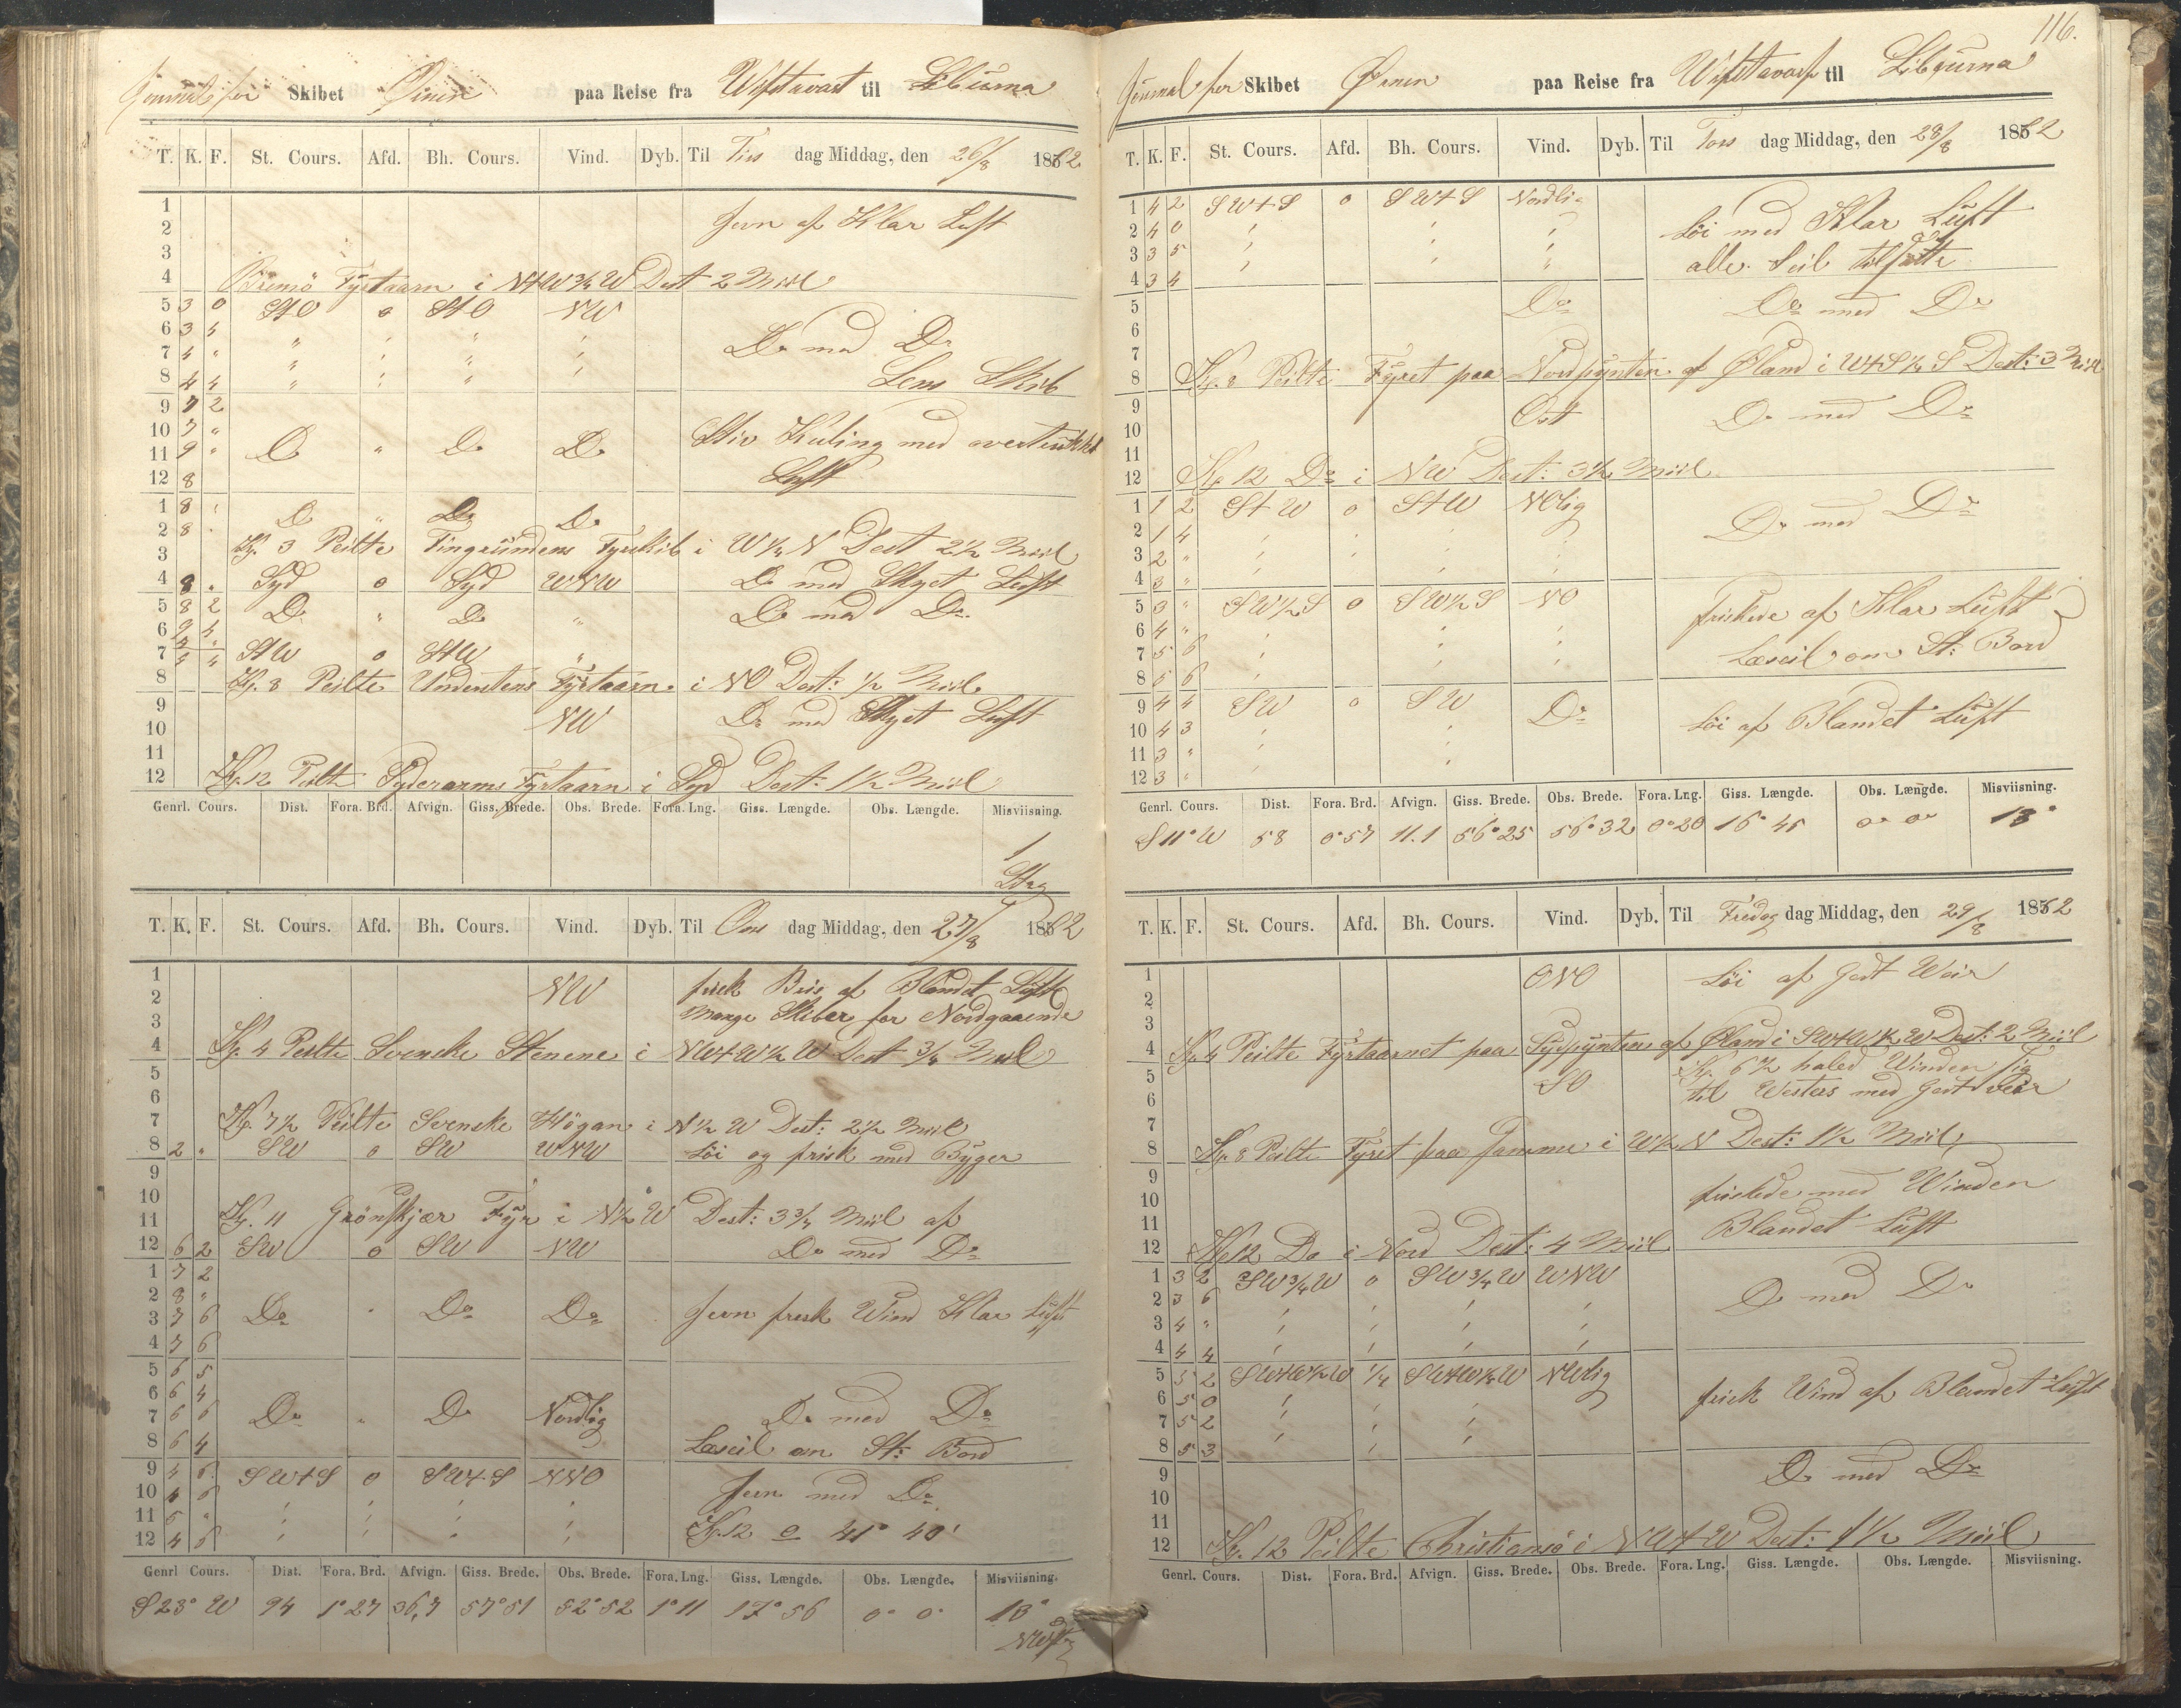 Journal for Skibet Ørnen paa Reise fra Wifstavarf til Liburna
T. K. F. St. Cours. Afd. Bh. Cours. Vind. Dyb. Til Tirs dag Middag, den 26/8 1862
1
2 Jevn af Klar Luft
3
4 Bremö Fyrtaarn i NtW3/4W Dest 2 Miil
5 3 0 StO 0 StO NW
6 3 4 " " " "
7 4 " " " " " Do med Do
8 4 4 " " " " Lens Skib
9 7 2
10 7 " Stiv Kuling med overtrukket
11 9 " Do " Do Do
12 8 Luft
1 8 " Do " Do Do
2 8 "
3 Kl. 3 Peilte Fingrundens Fyrskib i W1/4N Dest 2 1/2 Miil
4 8 " Syd 0 Syd WNW Do med Skyet Luft
5 8 2 Do " Do " Do med Do
6 9 4
7 StW 0 StW "
8 Kl. 8 Peilte Understens Fyrtaarn i NO Dest: 1/2 Miil
9 NW Do med Skyet Luft
10
11
12 Kl. 12 Peilte Syderarms Fyrtaarn i Syd Dest: 1 1/2 Miil
Genrl. Cours. Dist. Fora. Brd. Afvign. Giss. Brede. Obs. Brede. Fora. Lng. Giss. Længde. Obs. Længde. Misviisning.
1
Streg
T. K. F. St. Cours. Afd. Bh. Cours. Vind. Dyb. Til Ons dag Middag, den 27/8 1862
1 NW frisk Bris af Blandet Luft
2 Mange Skiber for Nordgaaende
3
4 Kl. 4 Peilte Svenske Stenene i NWtW1/2W Dest 3/4 Miil
5
6
7 Kl. 7 1/2 Peilte Svenske Högan i N1/2W Dest: 2 1/2 Miil
8 2 " SW 0 SW WNW Löi og frisk med Byger
9
10
11 Kl. 11 Grönskjær Fyr i N1/2W Dest: 3 3/4 Miil af
12 6 2 SW 0 SW NW Do med Do
1 7 2
2 8 "
3 7 6 Do " Do Do Jevn frisk Wind Klar Luft
4 7 6
5 6 5
6 6 4
7 6 6 Do " Do Nordlig Do med Do
8 6 4 Læseil om St: Bord
9 4 6 SWtS 0 SWtS NNO
10 4 6 " " " " Jevn med Do
11 5 " " " " "
12 4 6 " " " " Kl. 12 41° 40'
Genrl Cours. Dist. Fora. Brd. Afvign. Giss. Brede. Obs. Brede. Fora. Lng. Giss. Længde. Obs. Længde. Misviisning.
S 23° W 94 1° 27 36,7 57° 51 52° 52 1° 11 17° 56 0° 0' 13°
NWst
116.
Journal for Skibet Ørnen paa Reise fra Wifstavarf til Libourna
T. K. F. St. Cours. Afd. Bh. Cours. Vind. Dyb. Til Tors dag Middag, den 28/8 1862
1 4 2 SWtS 0 SWtS Nordlig
2 4 0 " " " Löi med Klar Luft
3 3 5 " " " alle Seil tilsatte
4 3 4 " " "
5 Do Do med Do
6
7
8 Kl. 8 Peilte Fyret paa Nordpynten af Øland i WtS1/4S Dest: 3 Miil
9 Ost Do med Do
10
11
12 Kl. 12 Do i NW Dest: 3 1/2 Miil
1 1 2 StW 0 StW NOlig
2 1 4 " " " " Do med Do
3 2 " " " " "
4 3 "
5 3 " SW1/2S 0 SW1/2S NO
6 4 " " " " friskede af Klar Luft
7 5 6 " " " Læseil om St: Bord
8 6 6 "
9 4 4 SW 0 SW Do
10 4 3 " " Löi af Blandet Luft
11 3 " " "
12 3 " "
Genrl. Cours. Dist. Fora. Brd. Afvign. Giss. Brede. Obs. Brede. Fora. Lng. Giss. Længde. Obs. Længde. Misviisning.
S 11° W 58 0° 57 11.1 56° 25 56° 32 0° 20 16° 45 0° 0° 13°
T. K. F. St. Cours. Afd. Bh. Cours. Vind. Dyb. Til Fredag dag Middag, den 29/8 1862
1 ONO Löi af Godt Weir
2
3
4 Kl. 4 Peilte Fyrtaarnet paa Sydpynten af Øland i SWtW1/2W Dest: 2 Miil
5 SO Kl. 6 1/2 haled Winden sig
6 til Westos med Godt Veir
7
8 Kl. 8 Peilte Fyret paa i W1/2N Dest: 1 1/2 Miil
9
10 friskede med Winden
11 Blandet Luft
12 Kl. 12 Do i Nord Dest: 4 Miil
1 3 2 SW3/4W 0 SW3/4W WNW
2 3 6 " " " " Do med Do
3 4 " " " " "
4 4 4 " " " "
5 5 2 SWtW1/2W 1/4 SWtW1/2W NWlig
6 5 0 " " " frisk Wind af Blandet Luft
7 5 2 " " "
8 5 3 " " "
9 Do med Do
10
11
12 Kl. 12 Peilte Christiansö i NWtW Dest: 1 1/2 Miil
Genrl. Cours. Dist. Fora. Brd. Afvign. Giss. Brede. Obs. Brede. Fora. Lng. Giss. Længde. Obs. Længde. Misviisning.